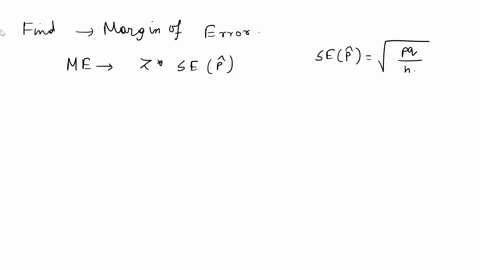 Find → Margin of Error.
ME → Z* SE(p̂)
SE(p̂) = √(pq/n.)